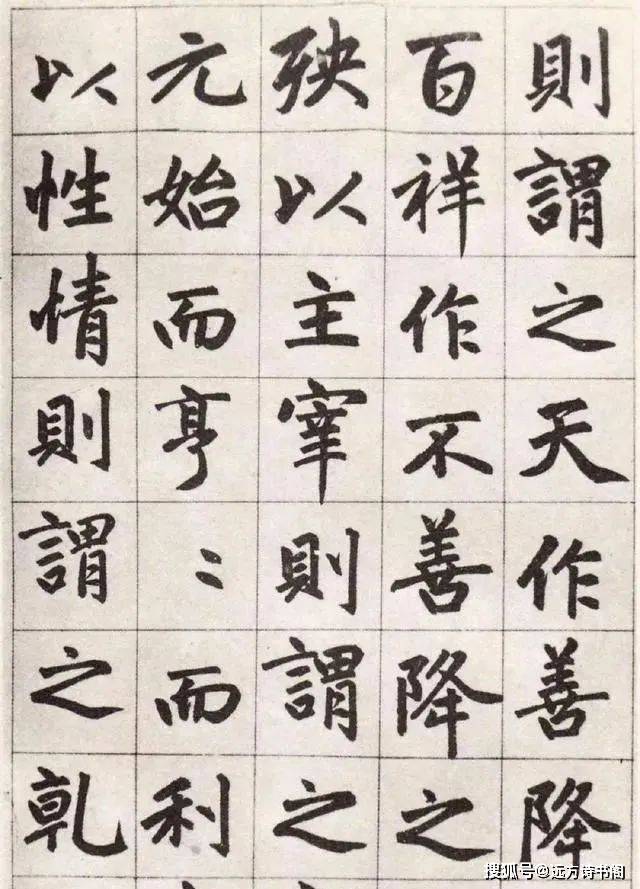 則謂之天作善降
百祥作不善降之
殃以主宰則謂之
元始而亨〻而利
以性情則謂之乾
搜狐号@远方诗书阁